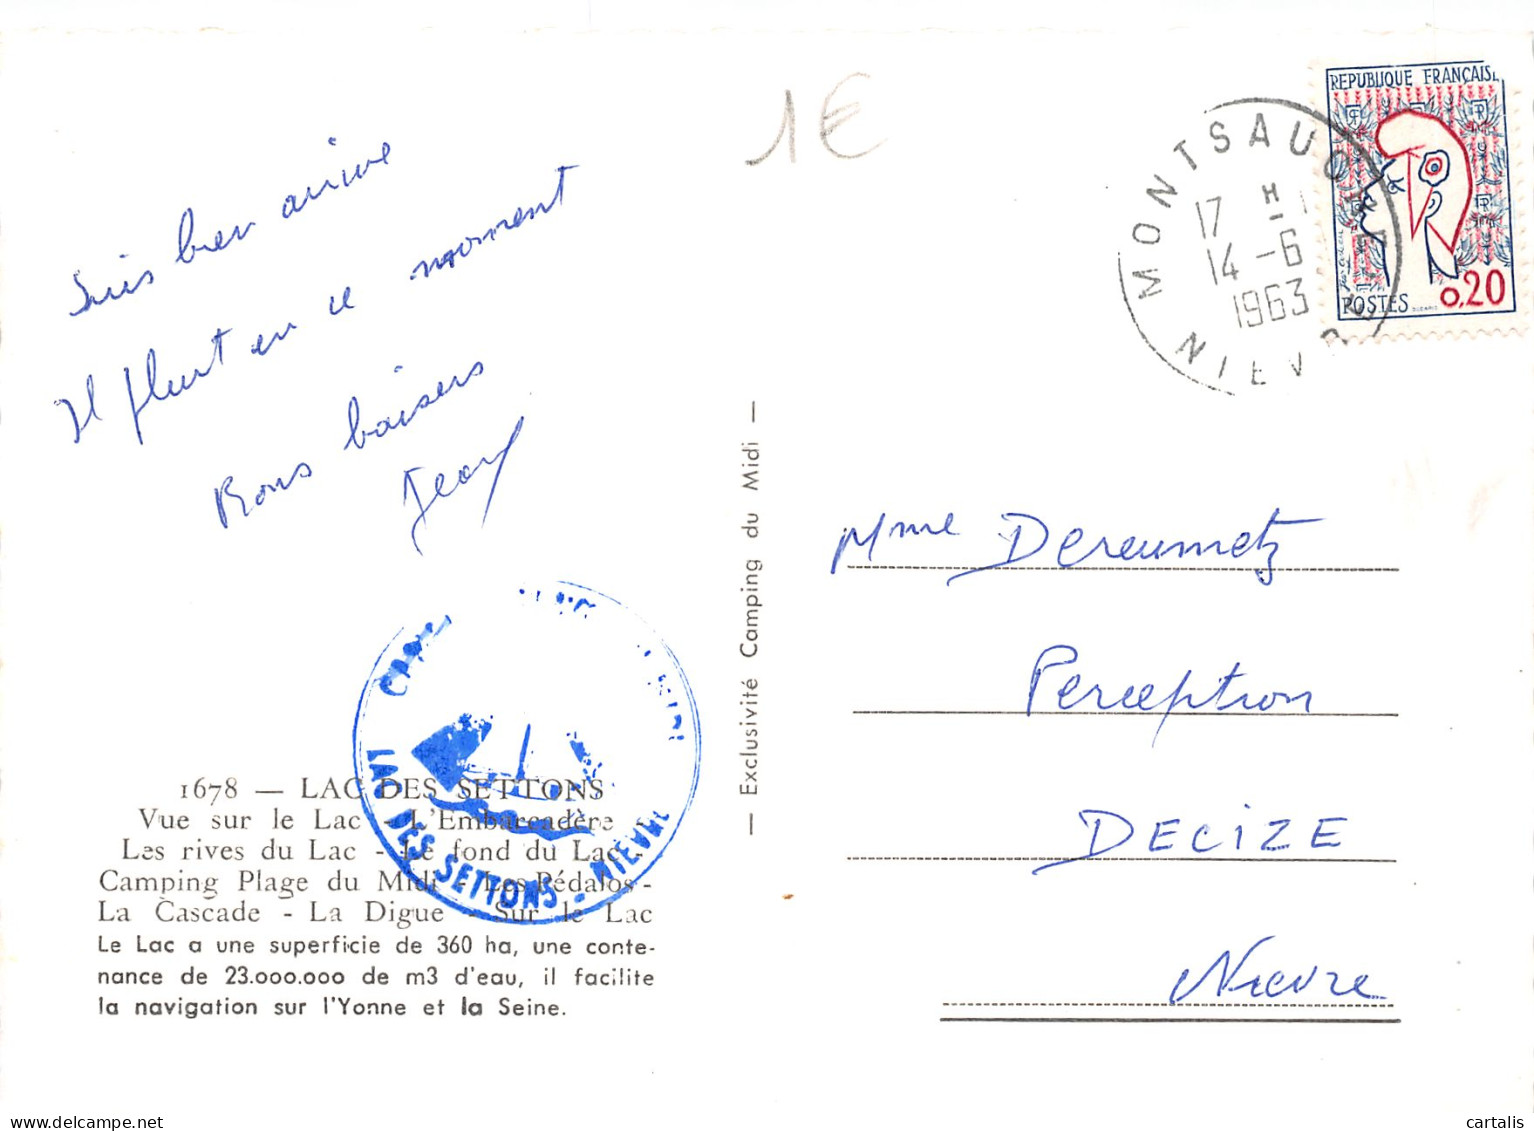 1€
REPUBLIQUE FRANÇAISE
POSTES 0,20
MONTSAUCHE
17 H
14-6
1963
NIEVRE
Suis bien arrivé
Il pleut en ce moment
Bons baisers
Jean
— Exclusivité Camping du Midi —
Mme Dereumetz
Perception
DECIZE
Nièvre
LAC DES SETTONS - NIEVRE
1678 — LAC DES SETTONS
Vue sur le Lac - L'Embarcadère -
Les rives du Lac - Le fond du Lac -
Camping Plage du Midi - Les Pédalos -
La Cascade - La Digue - Sur le Lac
Le Lac a une superficie de 360 ha, une conte-
nance de 23.000.000 de m3 d'eau, il facilite
la navigation sur l'Yonne et la Seine.
www.delcampe.net
cartalis